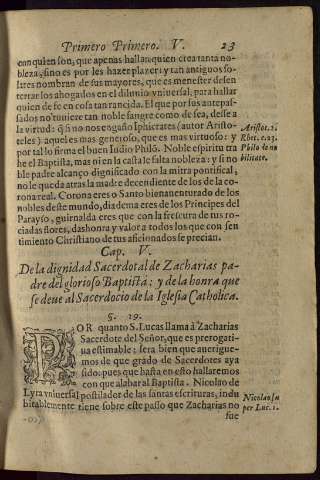 Primero Primero. V. 23
con quien son, que apenas hallan quien crea tanta no-
bleza, sino es por les hazer plazer: y tan antiguos so-
lares nombran de sus mayores, que es menester desen
terrar los ahogados en el diluuio vniuersal, para hallar
quien de fe en cosa tan rancida. El que por sus antepas-
sados no tuuiere tan noble sangre como dessea, dese a
la virtud: q̃ si no nos engaño Iphicrates (autor Aristo-
teles) aquel es mas generoso, que es mas virtuoso: y
por tal lo firma el buen Iudio Philõ. Noble espiritu tra
he el Baptista, mas ni en la casta le falta nobleza: y si no
ble padre alcanço dignificado con la mitra pontifical,
no le queda atras la madre decendiente de los de la co-
rona real. Corona eres o Santo bienauenturado de los
nobles deste mundo, diadema eres de los Principes del
Parayso, guirnalda eres que con la frescura de tus ro-
ciadas flores, das honra y valor a todos los que con sen
timiento Christiano de tus aficionados se precian.
Aristot. 1.
Rhet. c. 23.
Philo de no
bilitate.
Cap. V.
De la dignidad Sacerdotal de Zacharias pa-
dre del glorioso Baptista: y de la honra que
se deue al Sacerdocio de la Iglesia Catholica.
§. 19.
POR quanto S. Lucas llama à Zacharias
Sacerdote del Señor, que es prerogati-
ua estimable: sera bien que aueriguemos
de que grado de Sacerdotes aya
sido: pues que hasta en esto hallaremos
con que alabar al Baptista. Nicolao de
Lyra vniuersal postilador de las santas escrituras, indu
bitablemente tiene sobre este passo que Zacharias no
fue
Nicolao su
per Luc. 1.